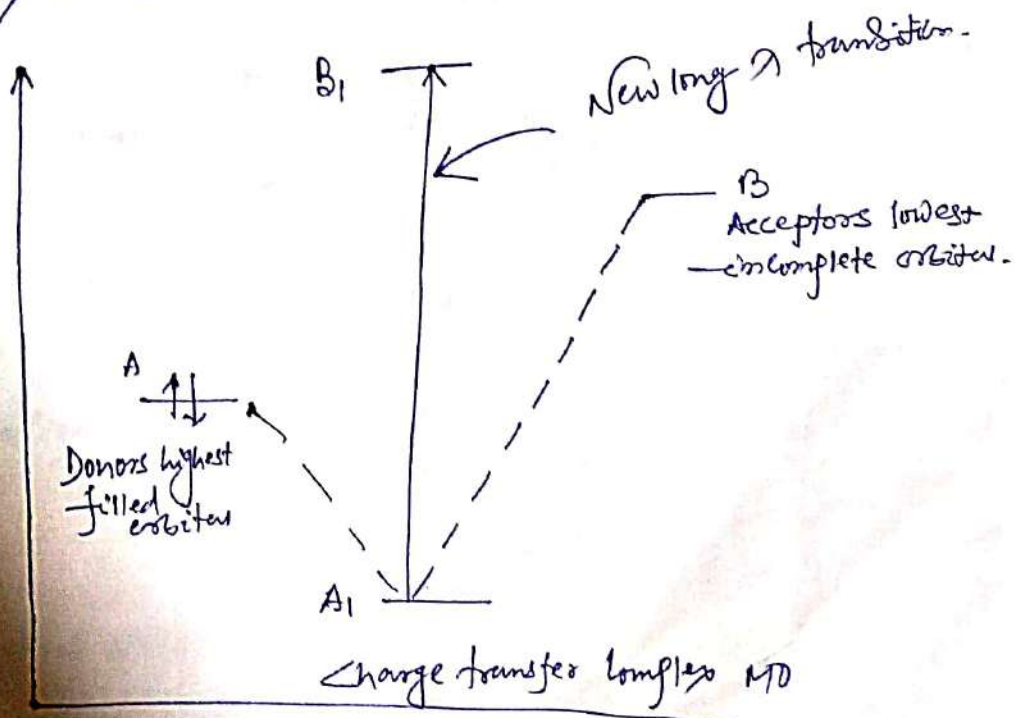 B1
New long λ transition.
B
Acceptors lowest
incomplete orbital.
A
Donors highest
filled
orbital
A1
Charge transfer complex MO